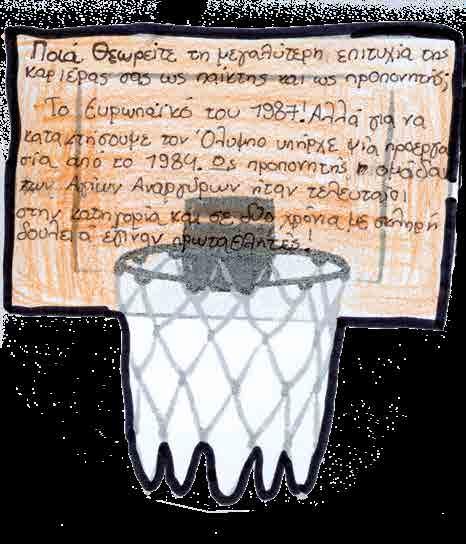 Ποιά θεωρείτε τη μεγαλύτερη επιτυχία της
καριέρας σας ως παίκτης και ως προπονητής;
Το Ευρωπαϊκό του 1987! Αλλά για να
κατακτήσουμε τον Όλυμπο υπήρχε μια προεργα
σία από το 1984. Ως προπονητής η ομάδα
των Αγίων Αναργύρων ήταν τελευταία
στην κατηγορία και σε δύο χρόνια με σκληρή
δουλειά έγιναν πρωταθλητές!